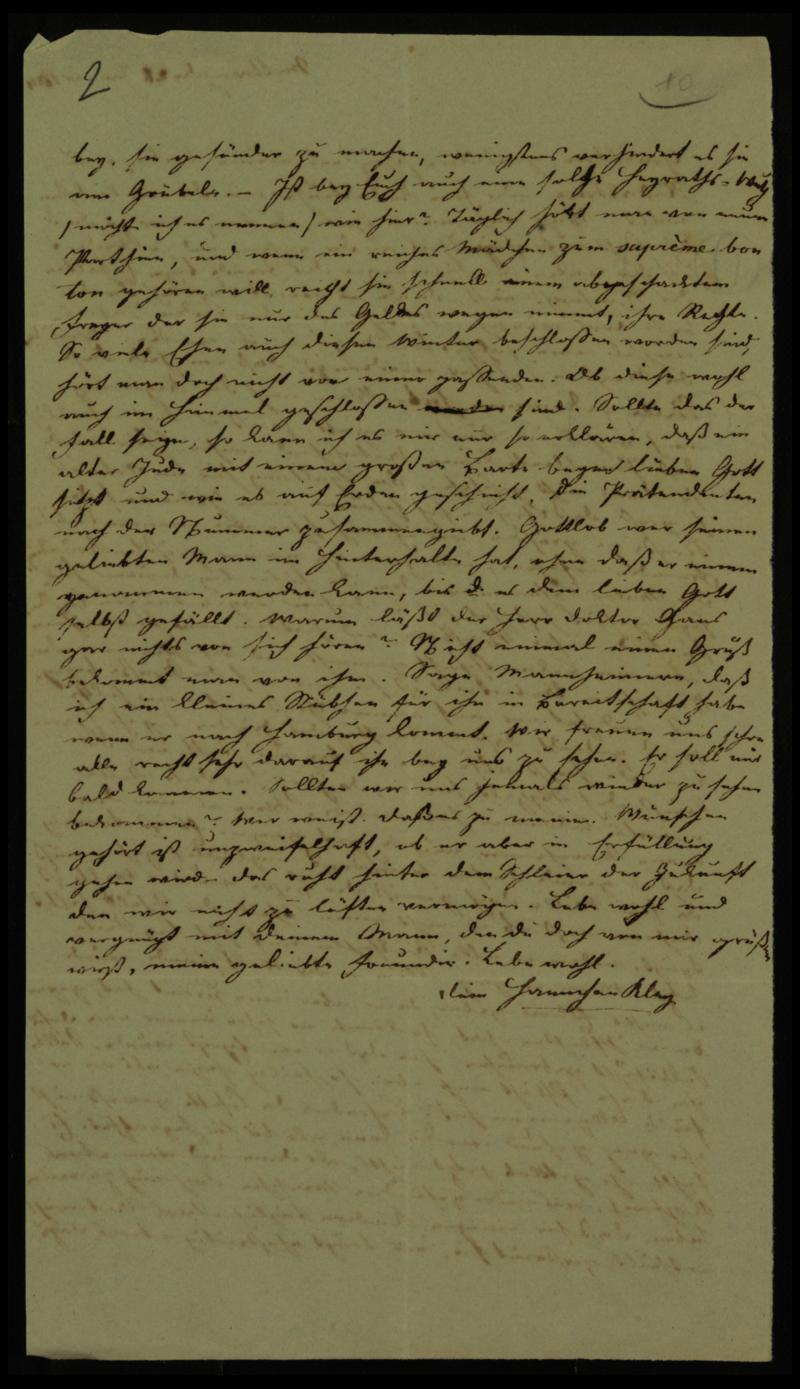 2
10
bey, sie gesünder zu machen, wenigstens verhindert es sie
am Grübeln. – Ist bey Euch auch eine solche Heyraths-Wuth
/möchte ich es nennen/ wie hier? Täglich hört man von neuen
Parthien, und wenn ein reiches Mädchen zum suprème bon
ton gehören will, reicht sie schnell einem abgeschackten
Freyer der sie nur des Geldes wegen nimmt, ihre Rechte.
So viele Ehen auch diesen Winter beschlossen worden sind,
hört man doch nicht von einer passenden. Ob diese wohl
auch im Himmel geschlossen sind. Sollte das der
Fall seyn, so kann ich es mir nur so erklären, daß ein
alter Jude mit einem großen Barte beym lieben Gott
sitzt und wie es auf Erden geschieht, die Prätendenten
nach der Nummer zusammengiebt. Gottlob wer seinen
geliebten Mann im Hinterhalte hat, ohne daß er einem
genommen werden kann, bis es dem lieben Gott
selbst gefällt. Warum läßt der Herr Doktor Gans
gar nichts von sich hören? Nicht einmal einen Gruß
bekommt man von ihm. Sage Mannheimern, daß
ich ein kleines Stübchen für ihn in Bereitschaft habe
wenn er nach Hamburg kommt. Wir freuen uns schon
alle recht sehr darauf ihn bey uns zu sehen. Er soll nur
bald kommen. Sollten wir uns jemals wieder zu sehen
bekommen? Wer weiß. Daß es zu meinen Wünschen
gehört ist unzweifelhaft, ob er aber in Erfüllung
gehen wird das ruht hinter dem Schleier der Zukunft
den wir nicht zu lüften vermögen. Lebe wohl und
vergnügt mit Deinem Mann, den du doch von mir grüßen
wirst, meine geliebte Freundin. Lebe wohl.
Dein Hannchen Kley